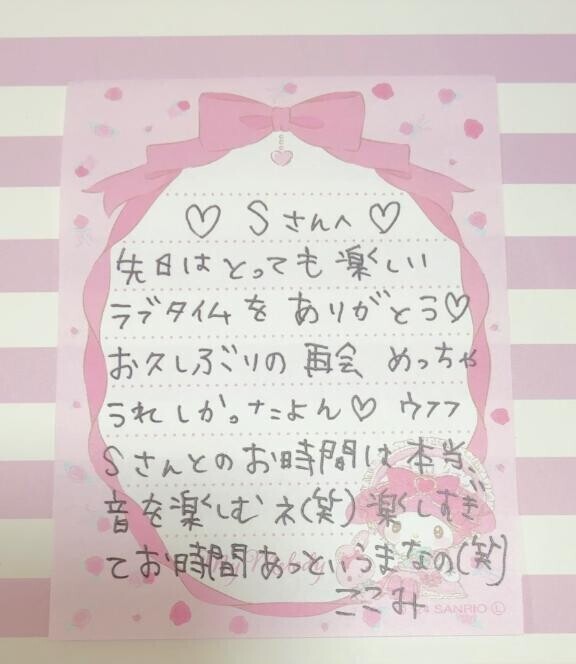 ♡ Sさんへ ♡
先日はとっても楽しい
ラブタイムをありがとう♡
お久しぶりの再会 めっちゃ
うれしかったよん♡ ウフフ
Sさんとのお時間は本当、
音を楽しむネ(笑)楽しすぎ
てお時間あっというまなの(笑)
ここみ
SANRIO Ⓛ